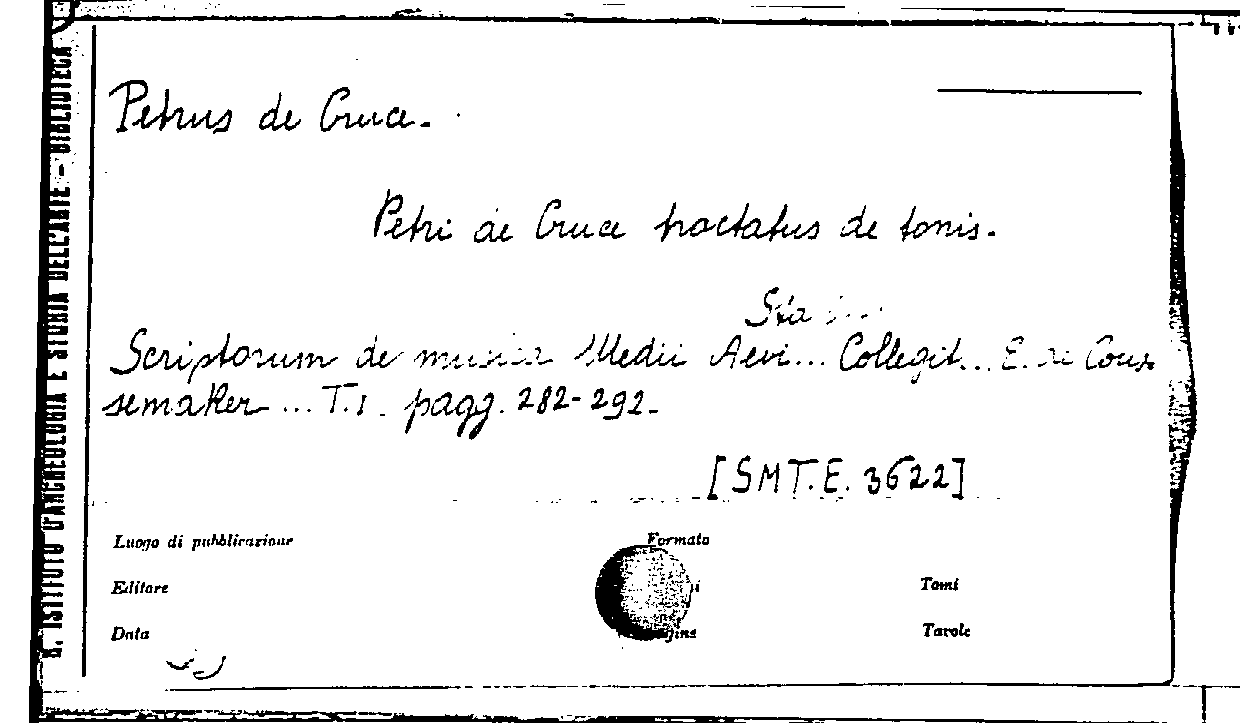 R. ISTITUTO D'ARCHEOLOGIA E STORIA DELL'ARTE - BIBLIOTECA
Petrus de Cruce.
Petri de Cruce tractatus de tonis.
Sta
Scriptorum de musica Medii Aevi... Collegit... E. de Cous
semaker ... T.1. pagg. 282-292.
[SMT.E. 3622]
Luogo di pubblicazione Formato
Editore Tomi
Data Tavole